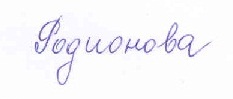 Родионова